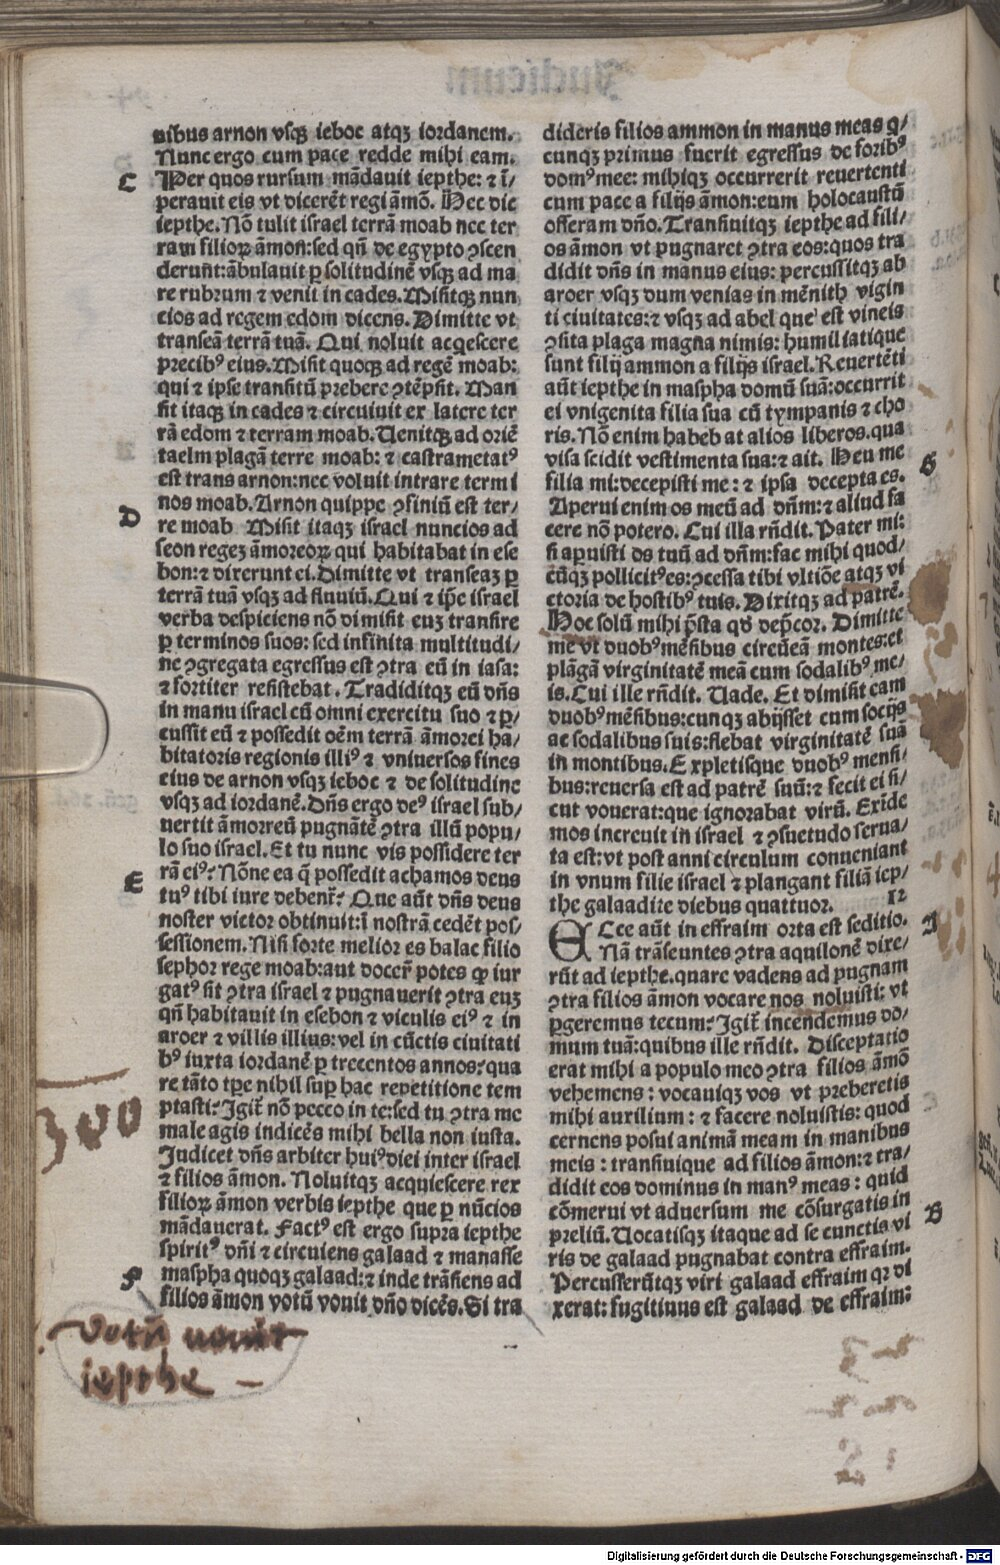 nibus arnon vsqꝫ ieboc atqꝫ iordanem.
Nunc ergo cum pace redde mihi eam.
C
Per quos rursum mādauit iepthe: ⁊ ī/
perauit eis vt dicerēt regi āmō. Hec dic
iepthe. Nō tulit israel terrā moab nec ter
ram filioꝝ āmon: sed qñ de egypto ꝯscen
derunt: ābulauit ꝑ solitudinē vsqꝫ ad ma
re rubrum ⁊ venit in cades. Misitqꝫ nun
cios ad regem edom dicens. Dimitte vt
transeā terrā tuā. Qui noluit acqescere
precibꝰ eius. Misit quoqꝫ ad regē moab:
qui ⁊ ipse transitū prebere ꝯtēpsit. Man
sit itaqꝫ in cades ⁊ circuiuit ex latere ter
rā edom ⁊ terram moab. Uenitqꝫ ad oriē
taelm plagā terre moab: ⁊ castrametatꝰ
est trans arnon: nec voluit intrare termi
nos moab. Arnon quippe ꝯfiniū est ter/
D
re moab Misit itaqꝫ israel nuncios ad
seon regeꝫ āmoreoꝝ qui habitabat in ese
bon: ⁊ dixerunt ei. Dimitte vt transeaꝫ ꝑ
terrā tuā vsqꝫ ad fluuiū. Qui ⁊ ip̄e israel
verba despiciens nō dimisit euꝫ transire
ꝑ terminos suos: sed infinita multitudi/
ne ꝯgregata egressus est ꝯtra eū in iasa:
⁊ fortiter resistebat. Tradiditqꝫ eū dñs
in manu israel cū omni exercitu suo ⁊ ꝑ/
cussit eū ⁊ possedit oēm terrā āmorei ha/
bitatoris regionis illiꝰ ⁊ vniuersos fines
eius de arnon vsqꝫ ieboc ⁊ de solitudine
vsqꝫ ad iordanē. Dñs ergo deꝰ israel sub/
uertit āmorreū pugnātē ꝯtra illū popu/
lo suo israel. Et tu nunc vis possidere ter
E
rā eiꝰ? Nōne ea q̄ possedit achamos deus
tuꝰ tibi iure debenr̄? Que aūt dñs deus
noster victor obtinuit: ī nostrā cedēt pos/
sessionem. Nisi forte melior es balac filio
sephor rege moab: aut docer̄ potes ꝙ iur
gatꝰ sit ꝯtra israel ⁊ pugnauerit ꝯtra euꝫ
qñ habitauit in esebon ⁊ viculis eiꝰ ⁊ in
aroer ⁊ villis illius: vel in cūctis ciuitati
bꝰ iuxta iordanē ꝑ trecentos annos: qua
re tāto tꝑe nihil suꝑ hac repetitione tem
300
ptasti? Igit̄ nō pecco in te: sed tu ꝯtra me
male agis indicēs mihi bella non iusta.
Iudicet dñs arbiter huiꝰdiei inter israel
⁊ filios āmon. Noluitqꝫ acquiescere rex
filioꝝ āmon verbis iepthe que ꝑ nūcios
mādauerat. Factꝰ est ergo supra iepthe
spiritꝰ dñi ⁊ circuiens galaad ⁊ manasse
F
maspha quoqꝫ galaad: ⁊ inde trāsiens ad
filios āmon votū vouit dño dicēs. Si tra
votū vouit
iepthe
dideris filios ammon in manus meas q/
cunqꝫ primus fuerit egressus de foribꝰ
domꝰ mee: mihiqꝫ occurrerit reuertenti
cum pace a filijs āmon: eum holocaustū
offeram dño. Transiuitqꝫ iepthe ad fili/
os āmon vt pugnaret ꝯtra eos: quos tra
didit dñs in manus eius: percussitqꝫ ab
aroer vsqꝫ dum venias in mēnith vigin
ti ciuitates: ⁊ vsqꝫ ad abel que est vineis
ꝯsita plaga magna nimis: humiliatique
sunt filij ammon a filijs israel. Reuertēti
aūt iepthe in maspha domū suā: occurrit
ei vnigenita filia sua cū tympanis ⁊ cho
ris. Nō enim habebat alios liberos. qua
visa scidit vestimenta sua: ⁊ ait. Heu me
G
filia mi: decepisti me: ⁊ ipsa decepta es.
Aperui enim os meū ad dñm: ⁊ aliud fa
cere nō potero. Cui illa rñdit. Pater mi:
si aꝑuisti os tuū ad dñm: fac mihi quod/
cūqꝫ pollicitꝰes: ꝯcessa tibi vltiōe atqꝫ vi
ctoria de hostibꝰ tuis. Dixitqꝫ ad patrē.
Hoc solū mihi p̄sta qđ dep̄cor. Dimitte
me vt duobꝰmēsibus circūeā montes: et
plāgā virginitatē meā cum sodalibꝰ me/
is. Cui ille rñdit. Uade. Et dimisit eam
duobꝰmēsibus: cunqꝫ abijsset cum socijs
ac sodalibus suis: flebat virginitatē suā
in montibus. Expletisque duobꝰ mensi/
bus: reuersa est ad patrē suū: ⁊ fecit ei si/
cut vouerat: que ignorabat virū. Exīde
mos increuit in israel ⁊ ꝯsuetudo serua/
ta est: vt post anni circulum conueniant
in vnum filie israel ⁊ plangant filiā iep/
the galaadite diebus quattuor. 12
A
ECce aūt in effraim orta est seditio.
Nā trāseuntes ꝯtra aquilonē dixe/
rūt ad iepthe. quare vadens ad pugnam
ꝯtra filios āmon vocare nos noluisti: vt
ꝑgeremus tecum? Igit̄ incendemus do/
mum tuā: quibus ille rñdit. Disceptatio
erat mihi a populo meo ꝯtra filios āmō
vehemens: vocauiqꝫ vos vt preberetis
mihi auxilium: ⁊ facere noluistis: quod
cernens posui animā meam in manibus
meis: transiuique ad filios āmon: ⁊ tra/
didit eos dominus in manꝰ meas: quid
B
cōmerui vt aduersum me cōsurgatis in
preliū. Uocatisqꝫ itaque ad se cunctis vi
ris de galaad pugnabat contra effraim.
Percusserūtqꝫ viri galaad effraim qꝛ di
xerat: fugitiuus est galaad de effraim:
Digitalisierung gefördert durch die Deutsche Forschungsgemeinschaft - DFG